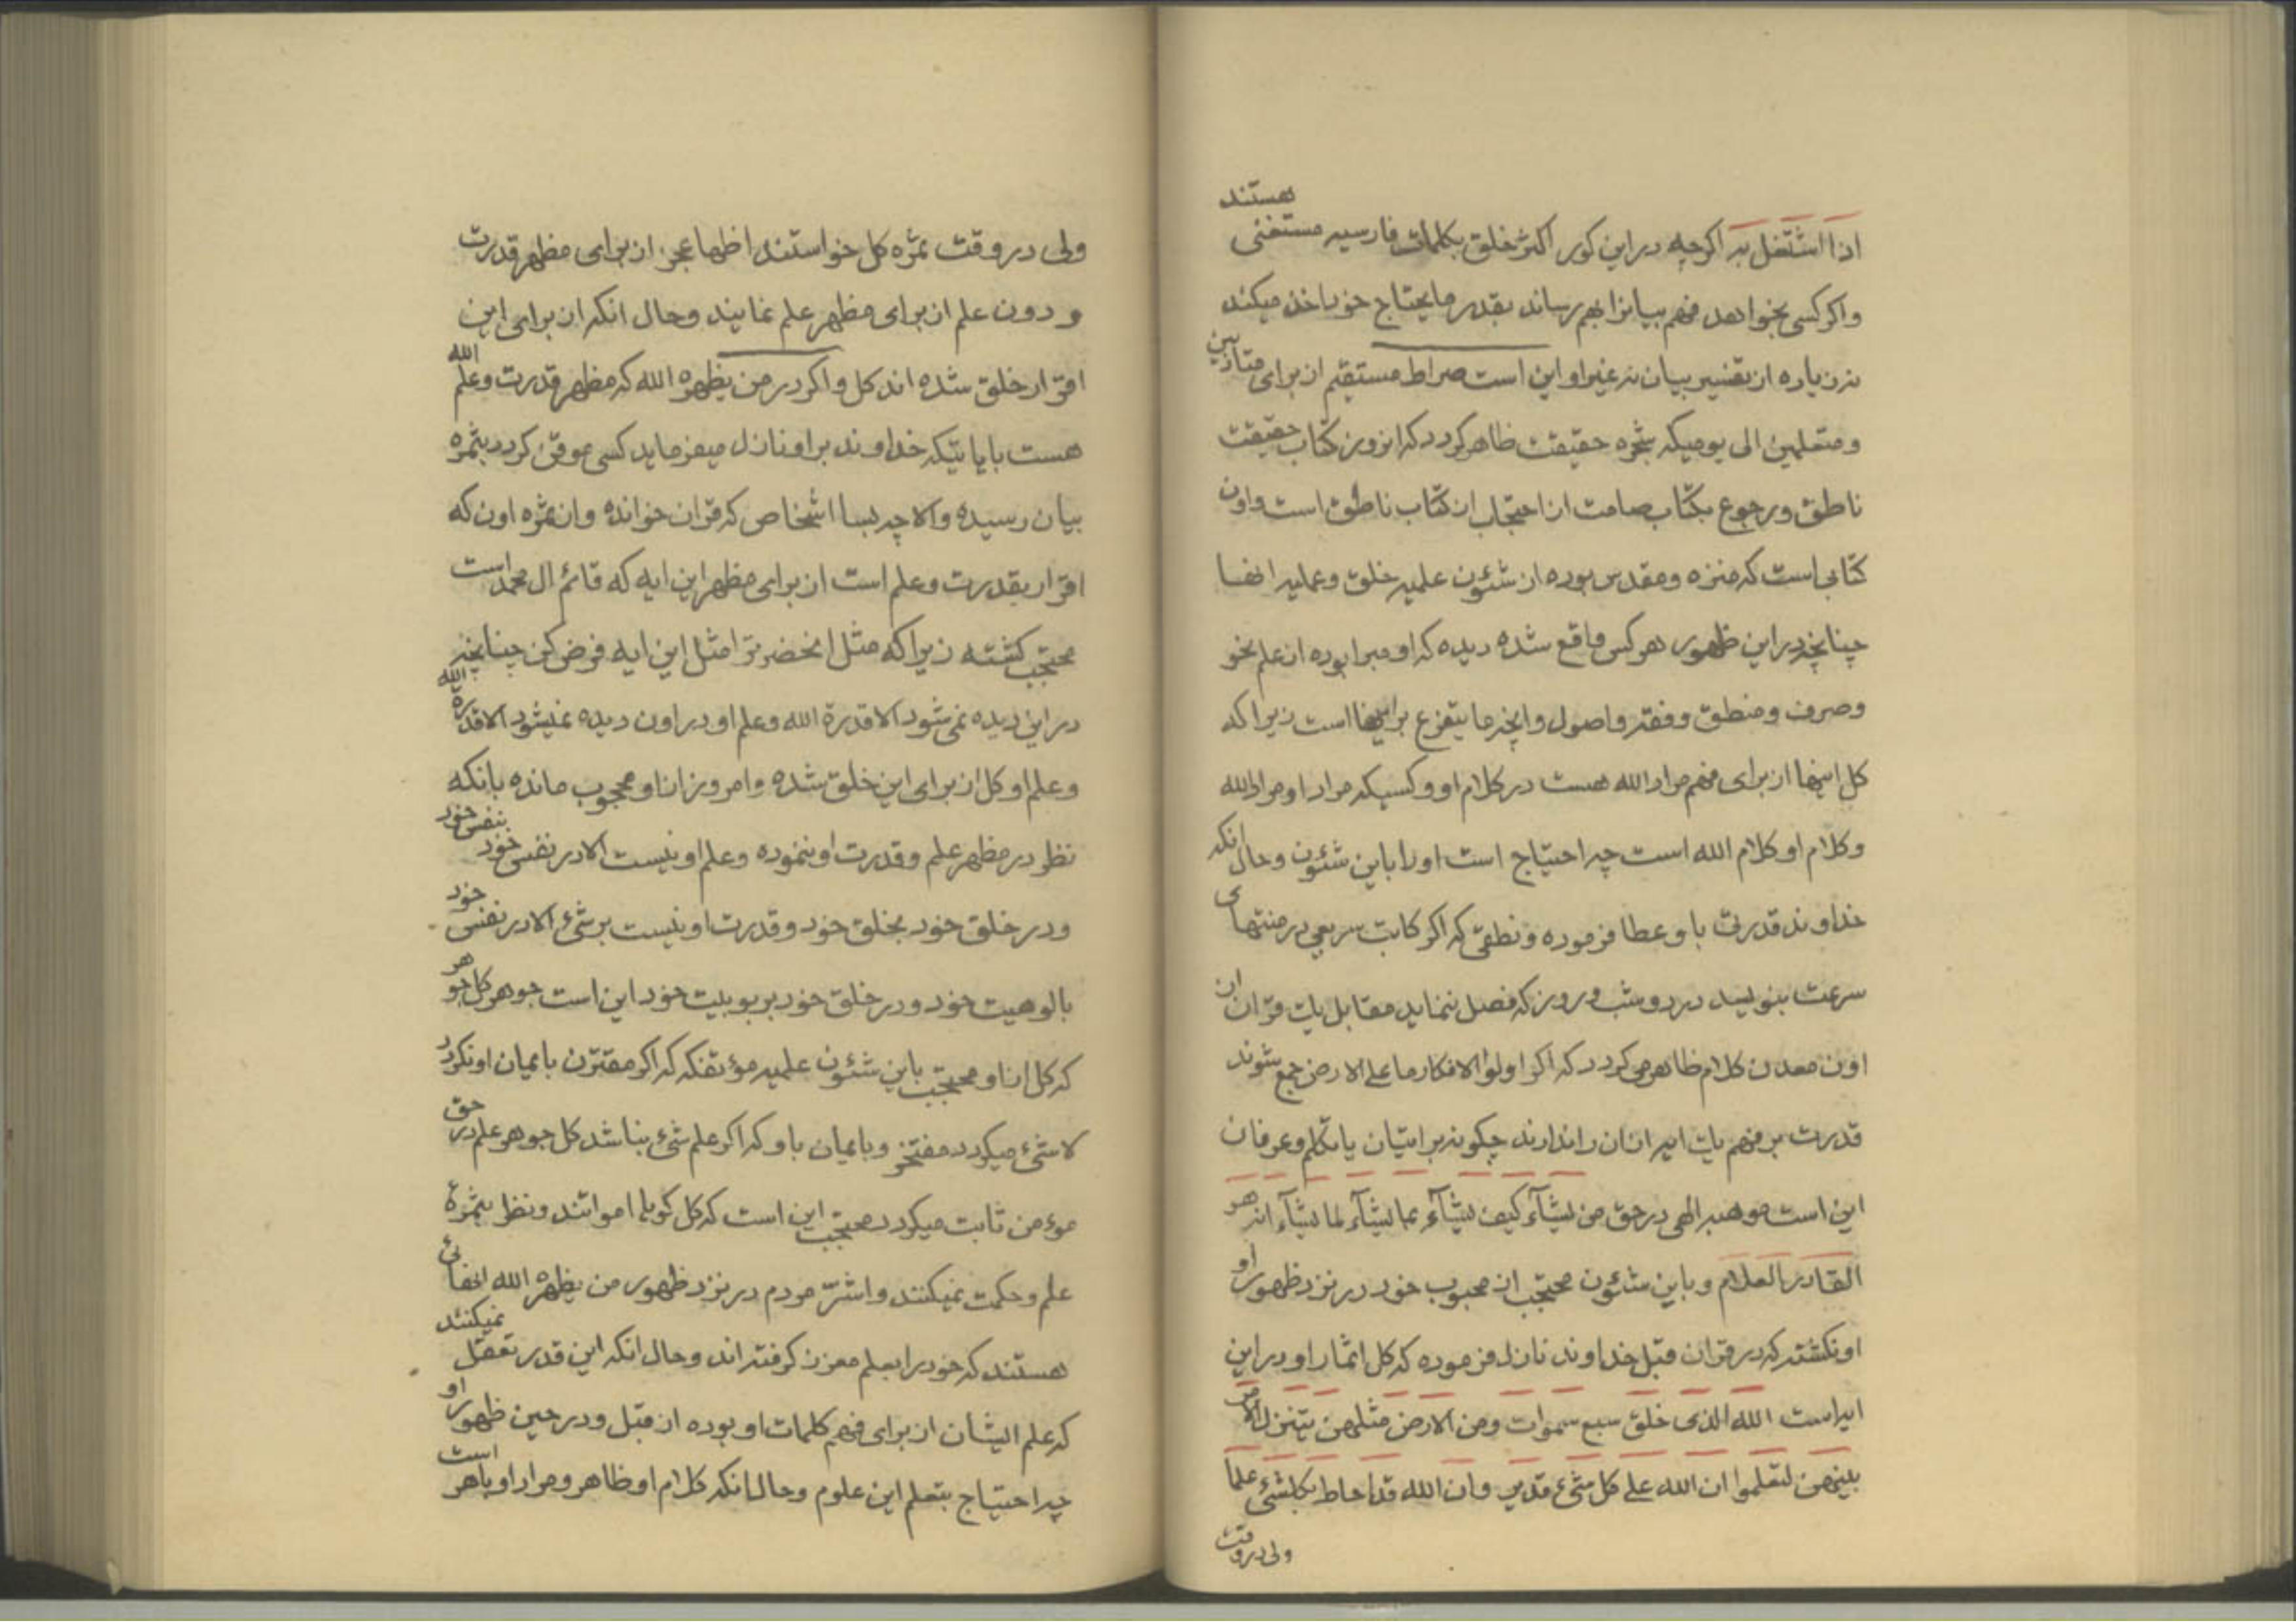 اذا اشتغل به اکرچه در این کور اکثر خلق بکلمات فارسیه مستغنی هستند
واکر کسی بخواهد فهم بیانرا بهم رساند بقدر مایحتاج خود اخذ میکند
نه زیاده از تفسیر بیان نه غیر او این است صراط مستقیم از برای متأدبین
ومتعلمین الی یومیکه شجره حقیقت ظاهر کردد که انروز کتاب حقیقت
ناطق ورجوع بکتاب صامت از احتجاب از کتاب ناطق است واون
کتابی است که منزه ومقدس بوده از شئون علمیه خلق وعملیه انها
چنانچه در این ظهور هر کس واقع شده دیده که او مبرا بوده از علم نحو
وصرف ومنطق وفقه واصول وانچه ما یتفرع بر اینها است زیرا که
کل اینها از برای فهم مراد الله هست در کلام او وکسیکه مراد او مراد الله
وکلام او کلام الله است چه احتیاج است اورا باین شئون وحال انکه
خداوند قدرتی باو عطا فرموده ونطقی که اکر کاتب سریعی در منتهای
سرعت بنویسد در دو شب وروز که فصل ننماید مقابل یات قران از
اون معدن کلام ظاهر می کردد که اکر اولوا الافکار ما علی الارض جمع شوند
قدرت بر فهم یات ایه ازان را ندارند چکونه بر اتیان یا تکلم وعرفان
این است موهبه الهی در حق من یشآء کیف یشآء بما یشآء لما یشآء انه هو
القادر العلام وباین شئون محتجب از محبوب خود در نزد ظهور او
اونکشته که در قران قبل خداوند نازل فرموده که کل اثمار او در این
ایه است الله الذی خلق سبع سموات ومن الارض مثلهن یتنزل الامر
بینهن لتعلموا ان الله علی کل شیء قدیر وان الله قد احاط بکلشیء علما
ولی در وقت
ولی در وقت ثمره کل خواستند اظها عجز از برای مظهر قدرت
ودون علم از برای مظهر علم نمایند وحال انکه از برای این
اقرار خلق شده اند کل واکر در من یظهره الله که مظهر قدرت وعلم الله
هست بایاتیکه خداوند بر او نازل میفرماید کسی موقن کردد بثمره
بیان رسیده والا چه بسا اشخاص که قران خوانده واز ثمره اون که
اقرار بقدرت وعلم است از برای مظهر این ایه که قائم ال محمد است
محتجب کشته زیرا که مثل انحضرترا مثل این ایه فرض کن چنانچه
در این دیده نمی شود الا قدرة الله وعلم او در اون دیده نمیشود الا قدرة الله
وعلم او کل از برای این خلق شده وامروز از او محجوب مانده بانکه
نظر در مظهر علم وقدرت او ننموده وعلم او نیست الا در نفس خود بنفس خود
ودر خلق خود بخلق خود وقدرت او نیست بر شیء الا در نفس خود
بالوهیت خود ودر خلق خود بربوبیت خود این است جوهر کل جوهر
که کل از او محتجب باین شئون علمیه مؤتفکه که اکر مقترن بایمان او نکردد
لا شیء میکردد مفتخر وبایمان باو که اکر علم شیء نباشد کل جوهر علم در حق
مؤمن ثابت میکردد محتجب این است که کل کویا امواتند ونظر بثمرهء
علم وحکمت نمیکنند واشرّ مردم در نزد ظهور من یظهره الله انهائی
هستند که خود را بعلم معزز کرفته اند وحال انکه این قدر تعقل نمیکنند
که علم ایشان از برای فهم کلمات او بوده از قبل ودر حین ظهور او
چه احتیاج بتعلم این علوم وحال انکه کلام او ظاهر ومراد او باهر است